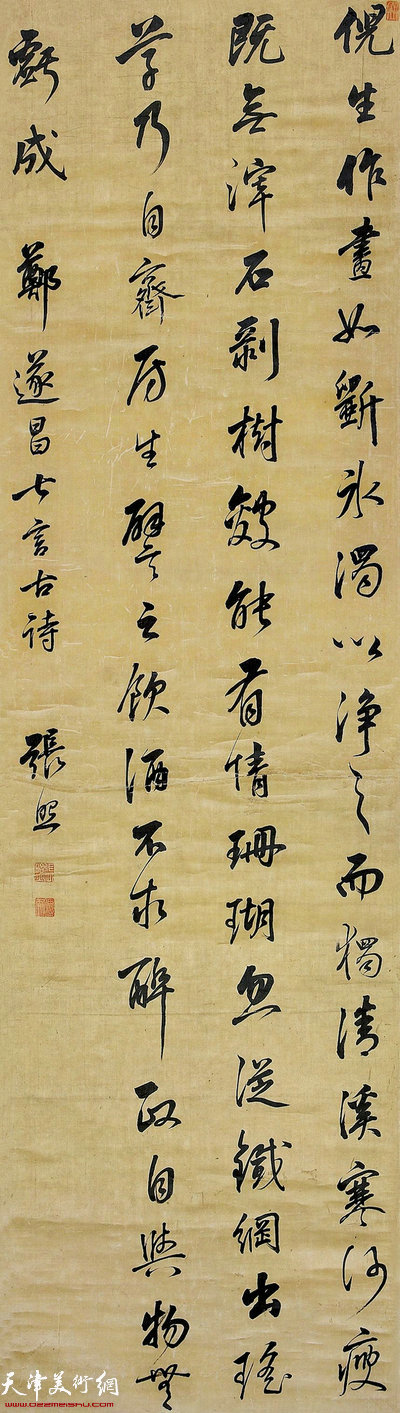 倪生作畫如斵冰濁以淨之而獨清溪寒沙瘦
既無滓石剥樹皴能有情珊瑚忽從鐵網出瑤
草乃自齋房生譬之飲酒不求醉政自與物無
虧成 鄭遂昌七言古詩 張照
天津美術網
www.022meishu.com